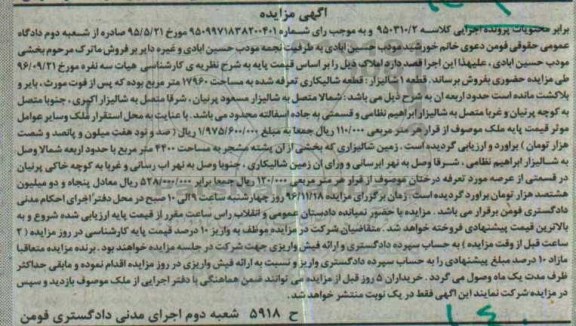 آگهی مزایده
برابر محتویات پرونده اجرایی کلاسه ۹۵۰۳۱۰/۲ و به موجب رای شماره ۹۵۰۹۹۷۱۸۳۸۲۰۰۴۰۱ مورخ ۹۵/۵/۲۱ صادره از شعبه دوم دادگاه
عمومی حقوقی فومن دعوی خانم خورشید مودب حسین آبادی به طرفیت نجمه مودب حسین آبادی و غیره دایر بر فروش ماترک مرحوم بخشی
مودب حسین آبادی، علیهذا این اجرا قصد دارد املاک ذیل را بر اساس قیمت پایه به شرح نظریه ی کارشناسی هیات سه نفره مورخ ۹۶/۰۹/۲۱
طی مزایده حضوری بفروش برساند. قطعه ۱ شالیزار: قطعه شالیکاری تعرفه شده به مساحت ۱۷۹۶۰ متر مربع بوده که پس از فوت مورث، بایر و
بلاکشت مانده است حدود اربعه ان به شرح ذیل می باشد: شمالا متصل به شالیزار مسعود پرنیان، شرقا متصل به شالیزار اکبری، جنوبا متصل
به کوچه پرنیان و غربا متصل به شالیزار ابراهیم نظامی و قسمتی به جاده آسفالته محدود می باشد. با عنایت به محل استقرار ملک وسایر عوامل
موثر قیمت پایه ملک موصوف از قرار هر متر مربعی ۱۱۰/۰۰۰ ریال جمعا به مبلغ ۱/۹۷۵/۶۰۰/۰۰۰ ریال (صد و نود هفت میلیون و پانصد و شصت
هزار تومان) براورد و ارزیابی گردیده است. زمین شالیزاری که بخشی از ان پشته مشجر به مساحت ۴۴۰۰ متر مربع با حدود اربعه شمالا وصل
به شالیزار ابراهیم نظامی، شرقا وصل به نهر ابرسانی و ورای ان زمین شالیکاری، جنوبا وصل به نهر اب رسانی و غربا به کوچه خاکی پرنیان
در قسمتی از عرصه مورد تعرفه درختان موصوف از قرار هر متر مربعی ۱۲۰/۰۰۰ ریال جمعا برابر ۵۲۸/۰۰۰/۰۰۰ ریال معادل پنجاه و دو میلیون
هشتصد هزار تومان براورد گردیده است. زمان برگزرای مزایده ۹۶/۱۱/۱۸ روز چهارشنبه ساعت ۹ الی ۱۰ صبح در محل دفتر اجرای احکام مدنی
دادگستری فومن برقرار می باشد. مزایده با حضور نماینده دادستان عمومی و انقلاب راس ساعت مقرر از قیمت پایه ارزیابی شده شروع و به
بالاترین قیمت پیشنهادی فروخته خواهد شد. متقاضیان شرکت در مزایده موظف به واریز ۱۰ درصد قیمت پایه کارشناسی در روز مزایده (۲
ساعت قبل از وقت مزایده) به حساب سپرده دادگستری و ارائه فیش واریزی جهت شرکت در جلسه مزایده خواهند بود. برنده مزایده متعاقبا
مازاد ۱۰ درصد مبلغ پیشنهادی را به حساب سپرده دادگستری واریز و نسبت به ارائه فیش واریزی در روز مزایده اقدام نموده و مابقی حداکثر
ظرف مدت یک ماه وصول می گردد. خریداران ۵ روز قبل از مزایده می توانند ضمن هماهنگی با دفتر اجرایی از ملک موصوف بازدید و سپس
در مزایده شرکت نمایند این آگهی فقط در یک نوبت منتشر خواهد شد.
ح ۵۹۱۸ شعبه دوم اجرای مدنی دادگستری فومن